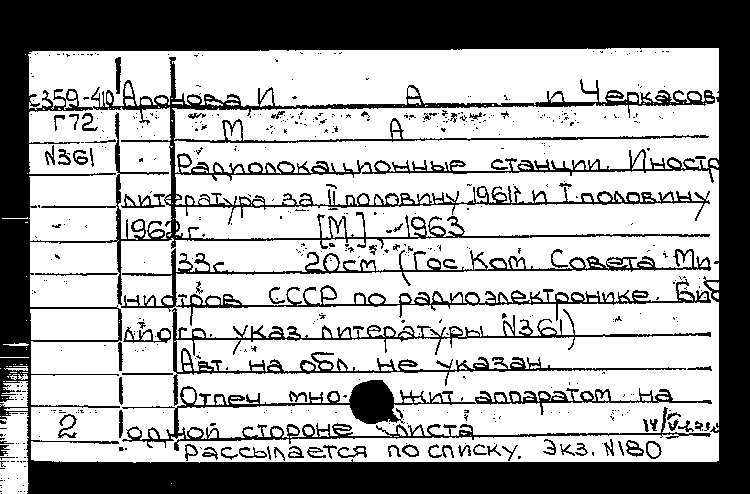 с359-410 Аронова, И А и Черкасова
Г72 М А
N361 Радиолокационные станции. Иностр
литература за II половину 1961г и I половину
1962г. [М.], 1963
33с 20см (Гос. Ком. Совета Ми-
нистров СССР по радиоэлектронике. Биб
лиогр. указ. литературы N361)
Авт. на обл. не указан.
Отпеч мно- жит. аппаратом на
2 одной стороне листа
рассылается по списку. Экз. N180